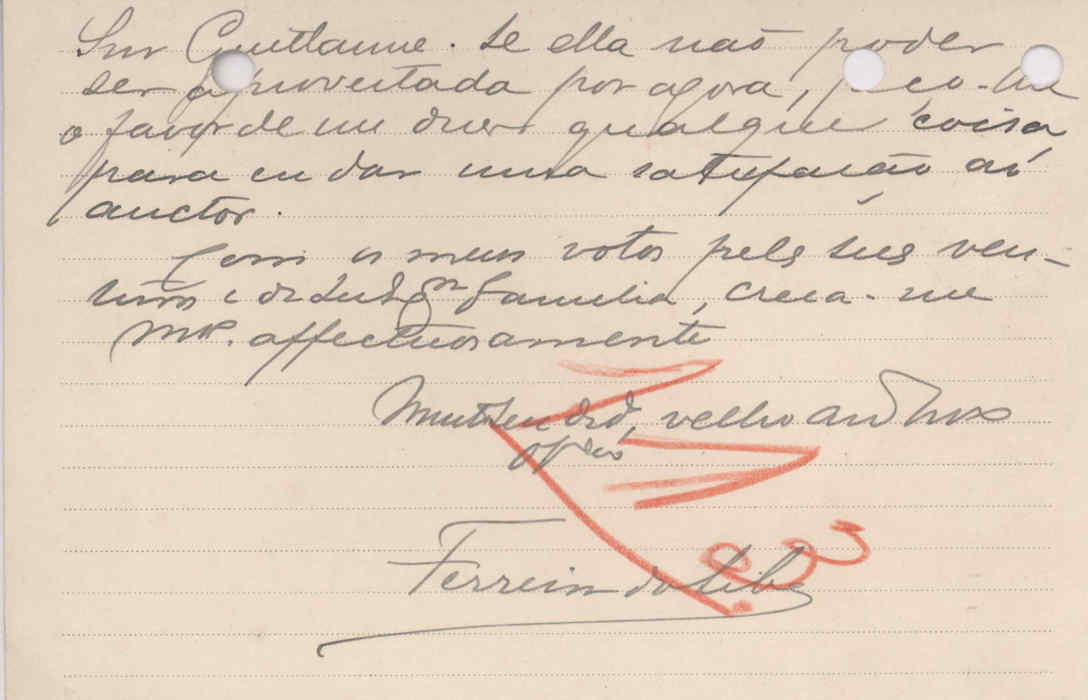 Snr Guillaume. Se ella não poder
ser aproveitada por agora, peço-lhe
o favor de me dizer qualquer coisa
para eu dar uma satisfação ao
auctor.
Com os meus votos pelas suas ven-
turas e de sua Exma familia, creia-me
Mto. affectuosamente
Muito seu ded. velho am
Ferreira da Silva